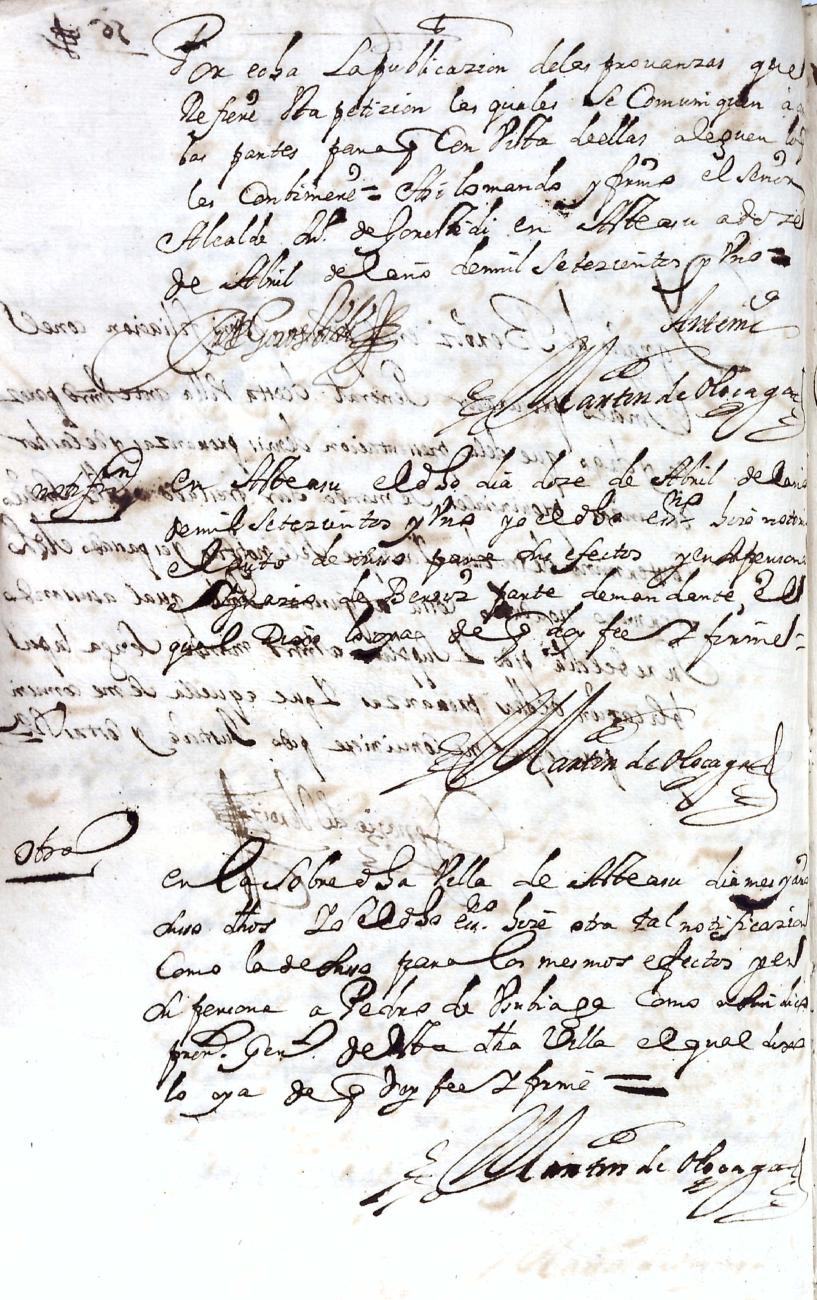 Por echa La publicazion delas provanzas que
Refiere esta petizion las quales se comuniquen a
las partes para q Con vista de ellas aleguen lo q
les conbiniere = Asi lo mando y firmo el señor
Alcalde de Goro en Asteasu a doze
de Abril del año de mil setezientos y uno =
Antemi
Martin de Olozaga
notifon
en Asteasu el dho dia doze de Abril del año
de mil setezientos y uno yo el dho essno hize notorio
el auto de suso para sus efectos y en su persona
a Ignazio de Beroiz parte demandante el
qual Dixo lo oya de q doy fee Y firme =
Martin de Olozaga
otra
en la sobre dha Villa de Asteasu dia mes y año
suso dhos Yo el dho esno hize otra tal notificazion
Como la de suso para los mesmos efectos y en
su persona a Pedro de Yrubiaga Como sindico
pror. Genl. de esta dha Villa el qual dixo
lo oya de q Doy fee Y firme =
Martin de Olozaga